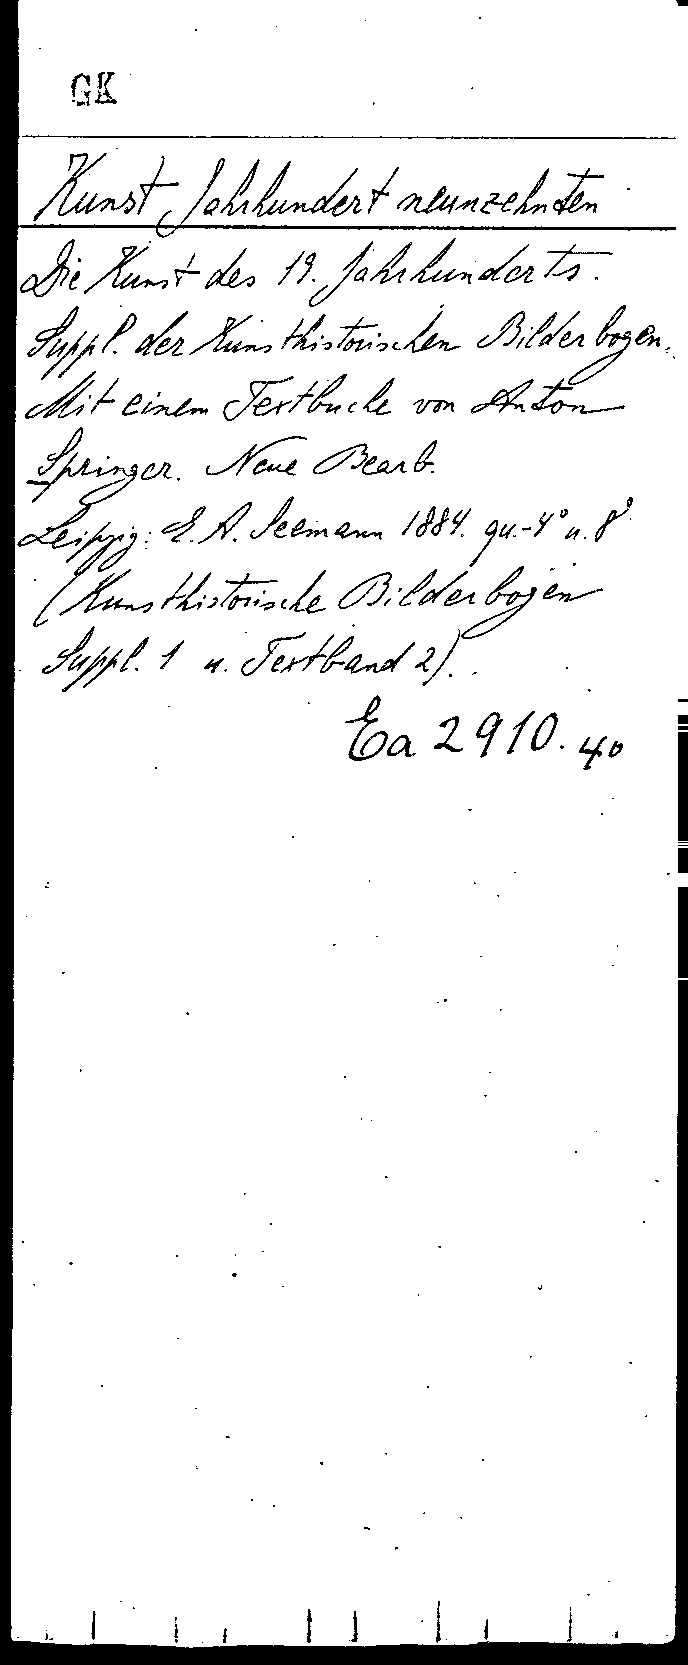 GK
Kunst Jahrhundert neunzehnten
Die Kunst des 19. Jahrhunderts.
Suppl. der Kunsthistorischen Bilderbogen.
Mit einem Textbuche von Anton
Springer. Neue Bearb.
Leipzig: E. A. Seemann 1884. qu.-4° u. 8°
(Kunsthistorische Bilderbogen
Suppl. 1 u. Textband 2).
Ea 2910. 40